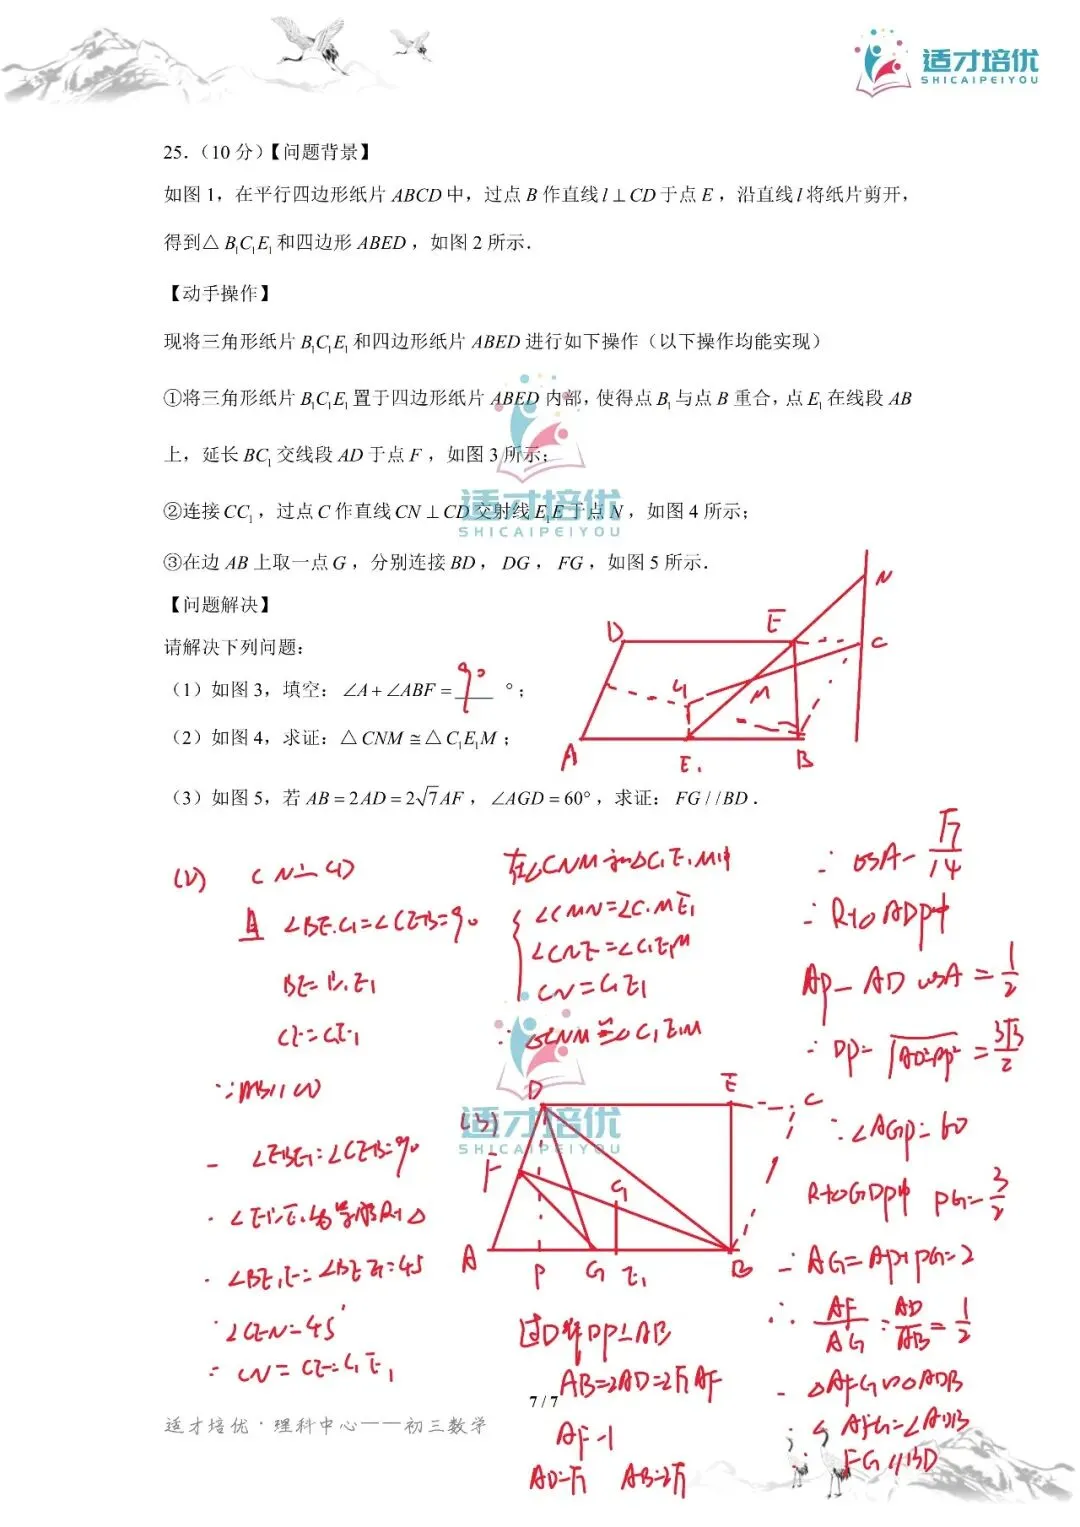 适才培优
SHICAIPEIYOU
25.（10分）【问题背景】
如图1，在平行四边形纸片ABCD中，过点B作直线l⊥CD于点E，沿直线l将纸片剪开，
得到△B₁C₁E₁和四边形ABED，如图2所示.
【动手操作】
现将三角形纸片B₁C₁E₁和四边形纸片ABED进行如下操作（以下操作均能实现）
①将三角形纸片B₁C₁E₁置于四边形纸片ABED内部，使得点B₁与点B重合，点E₁在线段AB
上，延长BC₁交线段AD于点F，如图3所示；
②连接CC₁，过点C作直线CN⊥CD交射线E₁E于点N，如图4所示；
适才培优
SHICAIPEIYOU
③在边AB上取一点G，分别连接BD，DG，FG，如图5所示.
【问题解决】
请解决下列问题：
（1）如图3，填空：∠A+∠ABF=90°；
（2）如图4，求证：△CNM≅△C₁E₁M；
（3）如图5，若AB=2AD=2√7AF，∠AGD=60°，求证：FG//BD.
D E N
C
M
A E₁ B
在△CNM和△C₁E₁M中
∠CMN=∠C₁ME₁
CN=C₁E₁
∴△CNM≌△C₁E₁M
∠BE₁C₁=∠CEB=90
BE=B₁E₁
CE=C₁E₁
∠CEN=45°
∴CN=CE=C₁E₁
(3)
D E C
F
A P G E₁ B
过D作DP⊥AB
AB=2AD=2√7AF
AF=1
AD=√7 AB=2√7
∴cosA=√7/14
∴Rt△ADP中
AP=AD cosA=1/2
∴DP=√AD²-AP²=3√3/2
∵∠AGD=60
Rt△GDP中 PG=3/2
∴AG=AP+PG=2
∴AF/AG=AD/AB=1/2
∴△AFG∽△ADB
∴∠AFG=∠ADB
∴FG∥BD
适才培优
SHICAIPEIYOU
7 / 7
适才培优·理科中心——初三数学